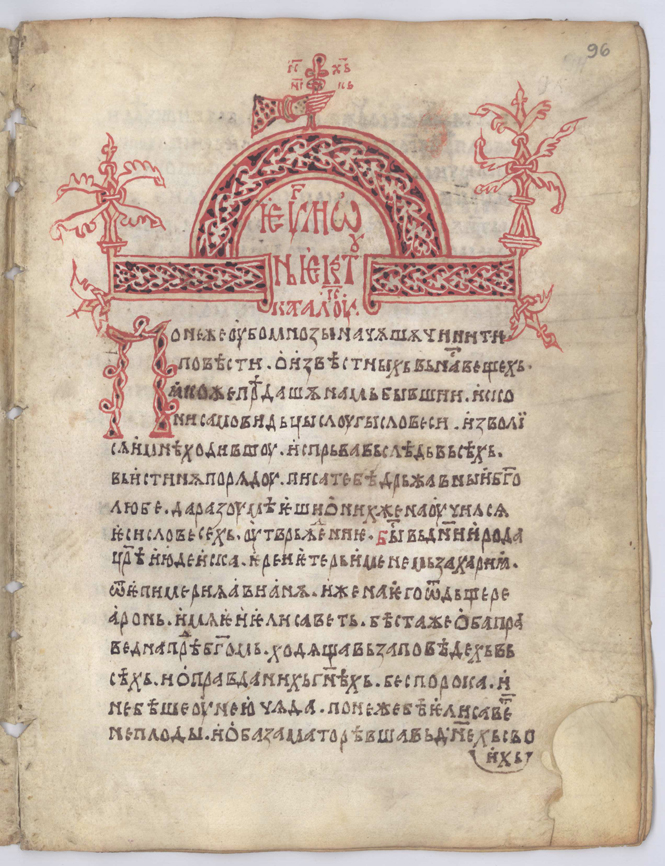 96
іс хъ
ни ка
к҃
ѥѵлиѡ
ѿ
Понежеоубомнозыначѧшѧчинити
повѣсти · оизвѣстныхьвьна҆вещехь ·
ꙗкожепрѣ҆дашѧнамьбывшии · иско
нисамовидьцыслоугысловеси · изволї
сѧимнѣходившоу · испрьвавьслѣдьвьсѣхь ·
выистинѧпорядоу · писатебѣдрьжавныибг҃о
любе · даразоумѣѥшионихженаоучилсѧ
ѥсисловесехь · оутврьжение · Бы҆вьдн҃ииро҆да
цр҃ѣиюдеиска · иереиѥтерьименемьзахариꙗ ·
ѿѥ҆
аронь · имѧѥиѥлисаветь · бѣстажеобапра
веднапрѣ҆бг҃омь · ходящавьзаповѣдехьвь
сѣхь · иоправданихьгн҃ѣхь · беспорока · и
небѣшеоунеючѧда · понежебѣѥлисаве҆
неплоды · иобазаматорѣвшавьдн҃ехьсво
ихь